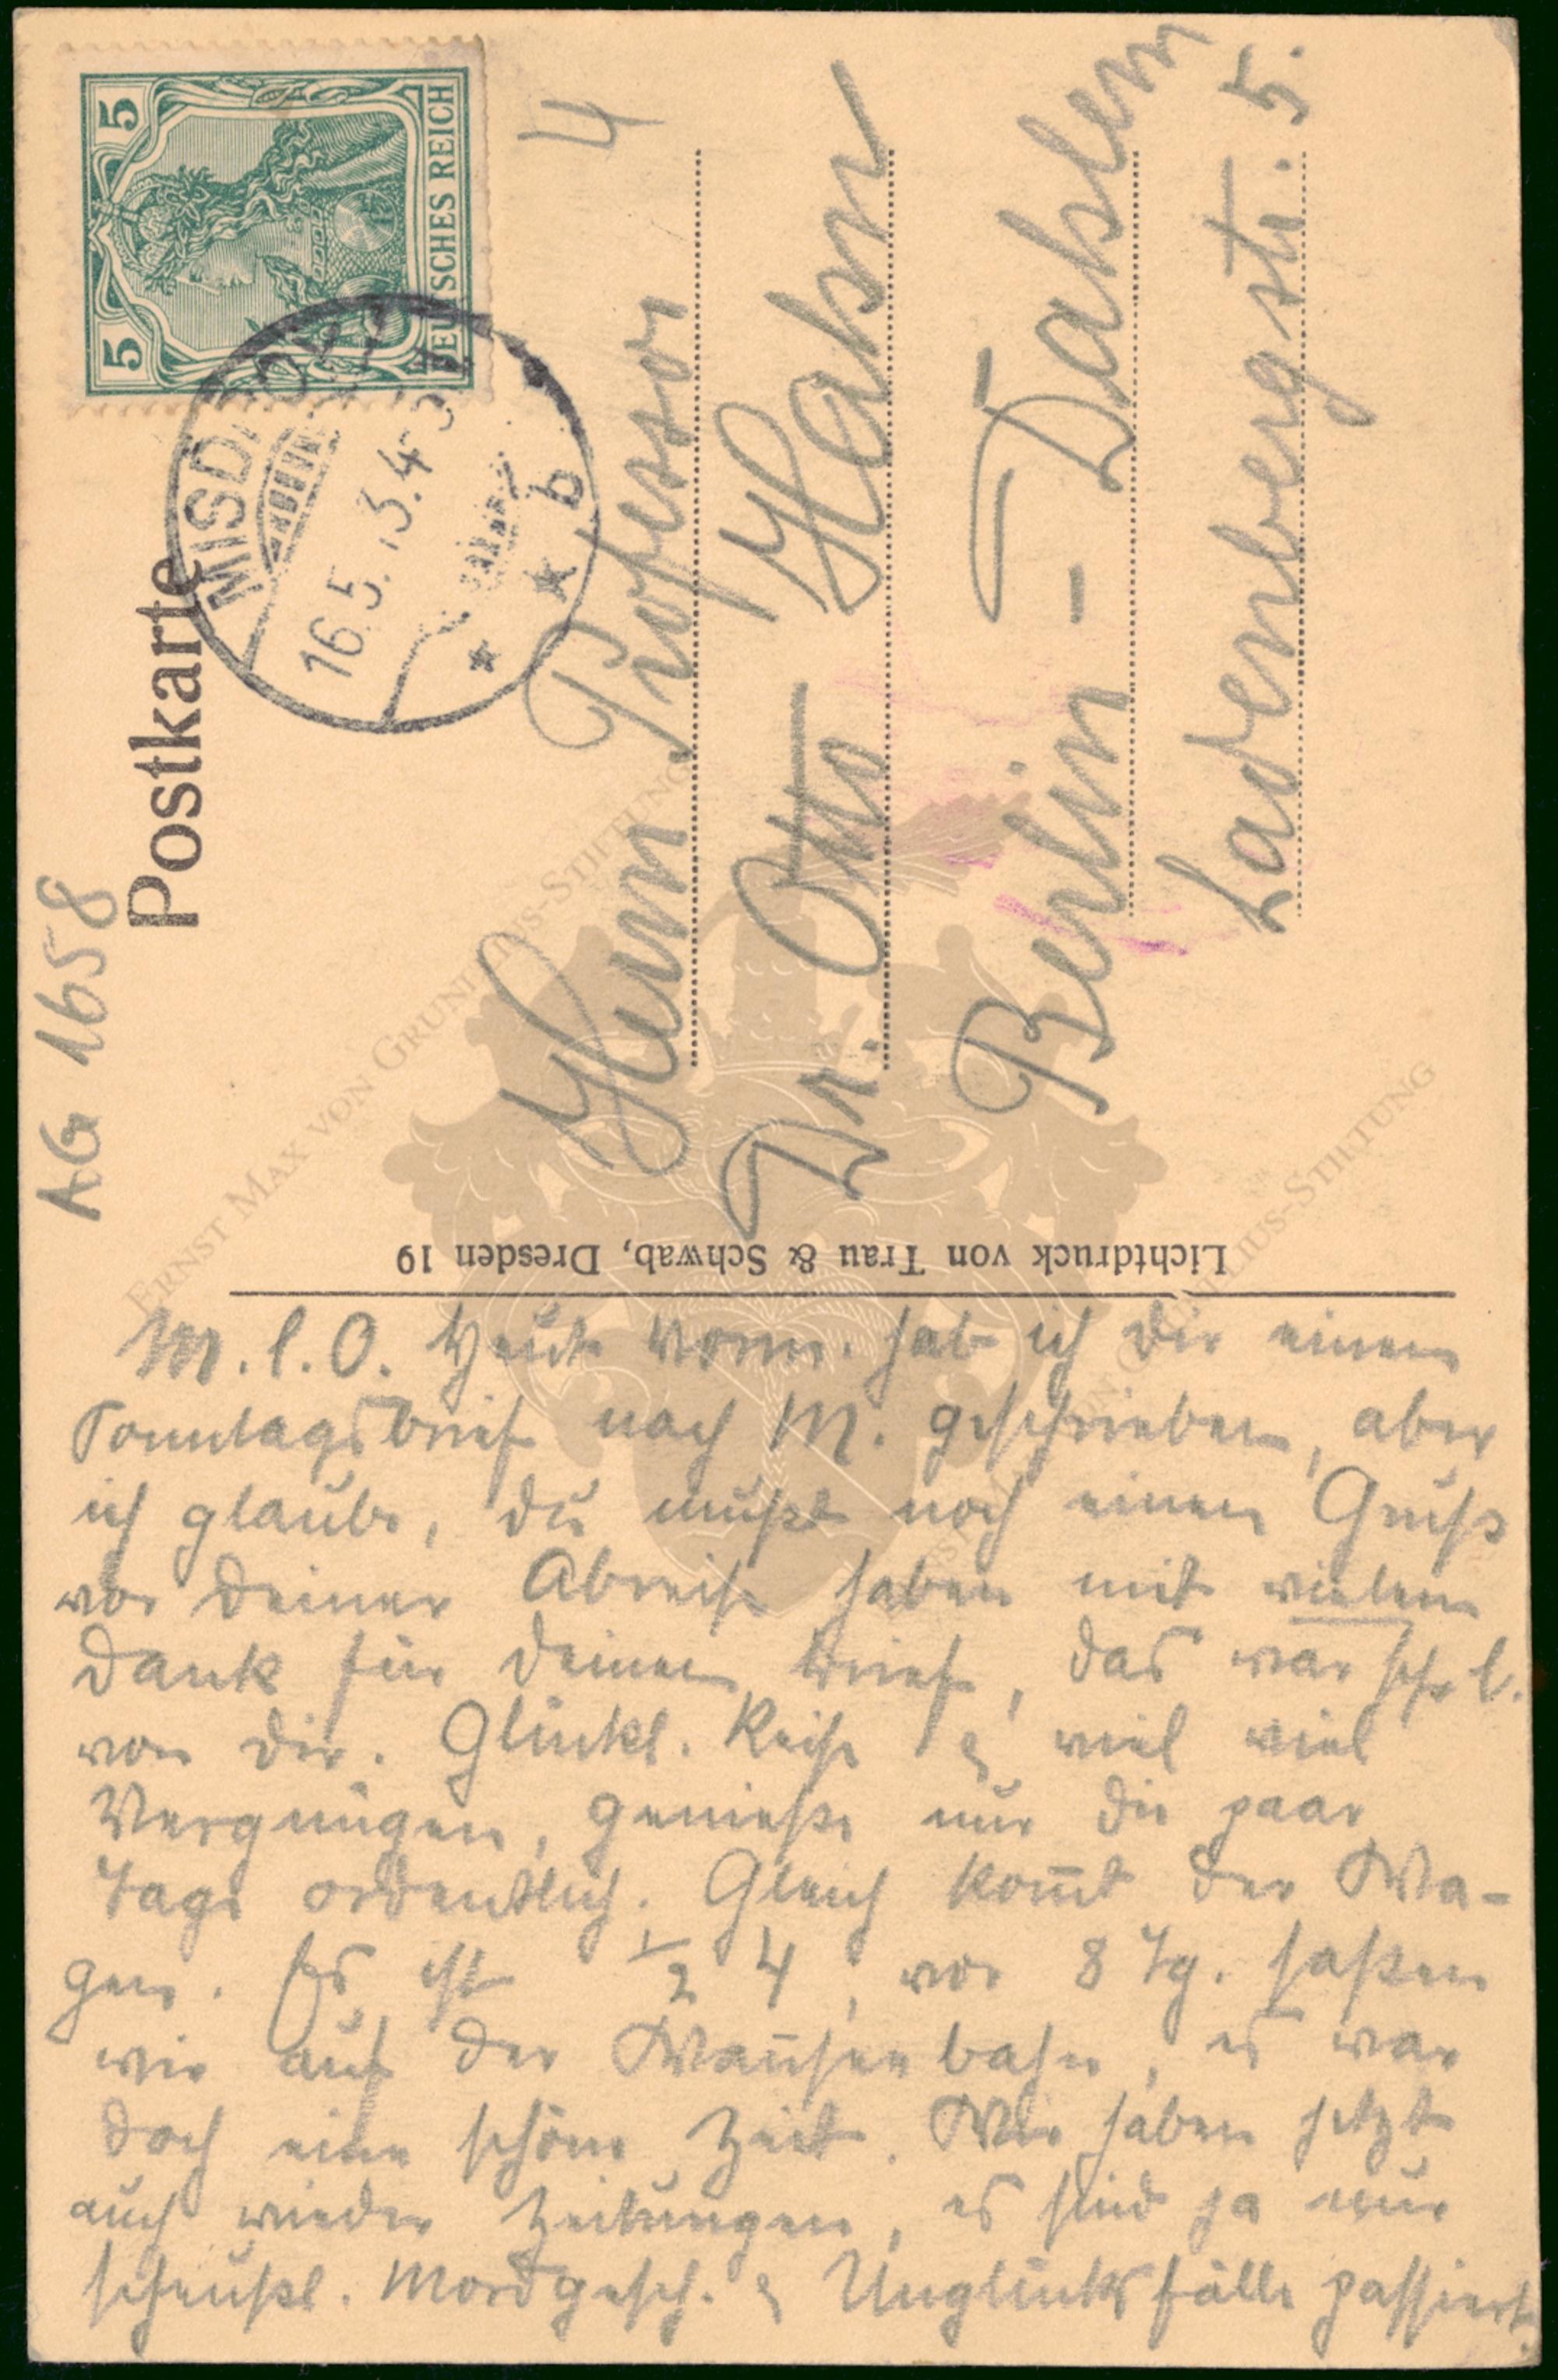 AG 1658
Postkarte
5 5
DEUTSCHES REICH
MISDROY
16.5.13.4-5
* * b
4
Herrn Professor
Dr. Otto Hahn
Berlin - Dahlem
Ladenbergstr. 5.
Lichtdruck von Trau & Schwab, Dresden 19
ERNST MAX VON GRUNELIUS-STIFTUNG
ERNST MAX VON GRUNELIUS-STIFTUNG
M. l. O. Heute Vorm. hab ich dir einen
Sonntagsbrief nach M. geschrieben, aber
ich glaube, du mußt noch einen Gruß
vor deiner Abreise haben mit vielem
Dank für deinen Brief, das war sehr l.
von dir. Glückl. Reise & viel viel
Vergnügen, genieße nur die paar
Tage ordentlich. Gleich kom̅t der Wa-
gen. Es ist ½ 4, vor 8 Tg. saßen
wir auf der Wan̅seebahn, es war
doch eine schöne Zeit. Wir haben jetzt
auch wieder Zeitungen, es sind ja nur
scheußl. Mordgesch. & Unglücksfälle passiert.